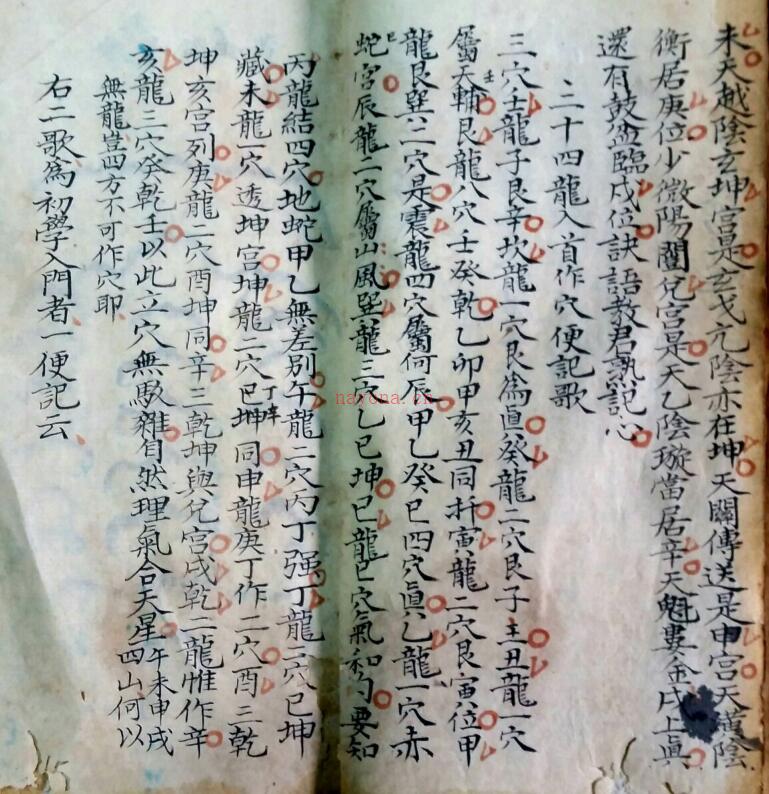 未天越陰玄坤宮是玄戈亢陰亦在坤天關傳送是申宮天漢陰
衡居庚位少微陽闔兌宮是天乙陰璇當居辛天魁婁金戌上真
還有鼓盆臨戌位訣語教君熟記心
二十四龍入首作穴便記歌
三穴壬龍子艮辛坎龍一穴艮為真癸龍二穴艮子主丑龍一穴
屬天輔艮龍八穴壬癸乾乙卯甲亥丑同扦寅龍二穴艮寅位甲
龍艮巽二穴是震龍四穴屬何辰甲乙癸巳四穴真乙龍一穴赤
蛇宮辰龍二穴屬山風巽龍三穴乙巳坤巳龍巳穴氣和勻要知
丙龍結四穴地蛇甲乙無差別午龍二穴丙丁强丁龍二穴巳坤
藏未龍一穴透坤宮坤龍二穴巳坤同申龍庚丁作二穴酉三乾
坤亥宮列庚龍二穴酉坤同辛三乾坤與兌宮戌乾二龍惟作辛
亥龍三穴癸乾壬以此立穴無駁雜自然理氣合天星午未申戌四山何以
無龍豈四方不可作穴耶
右二歌為初學入門者一便記云
nayona.cn